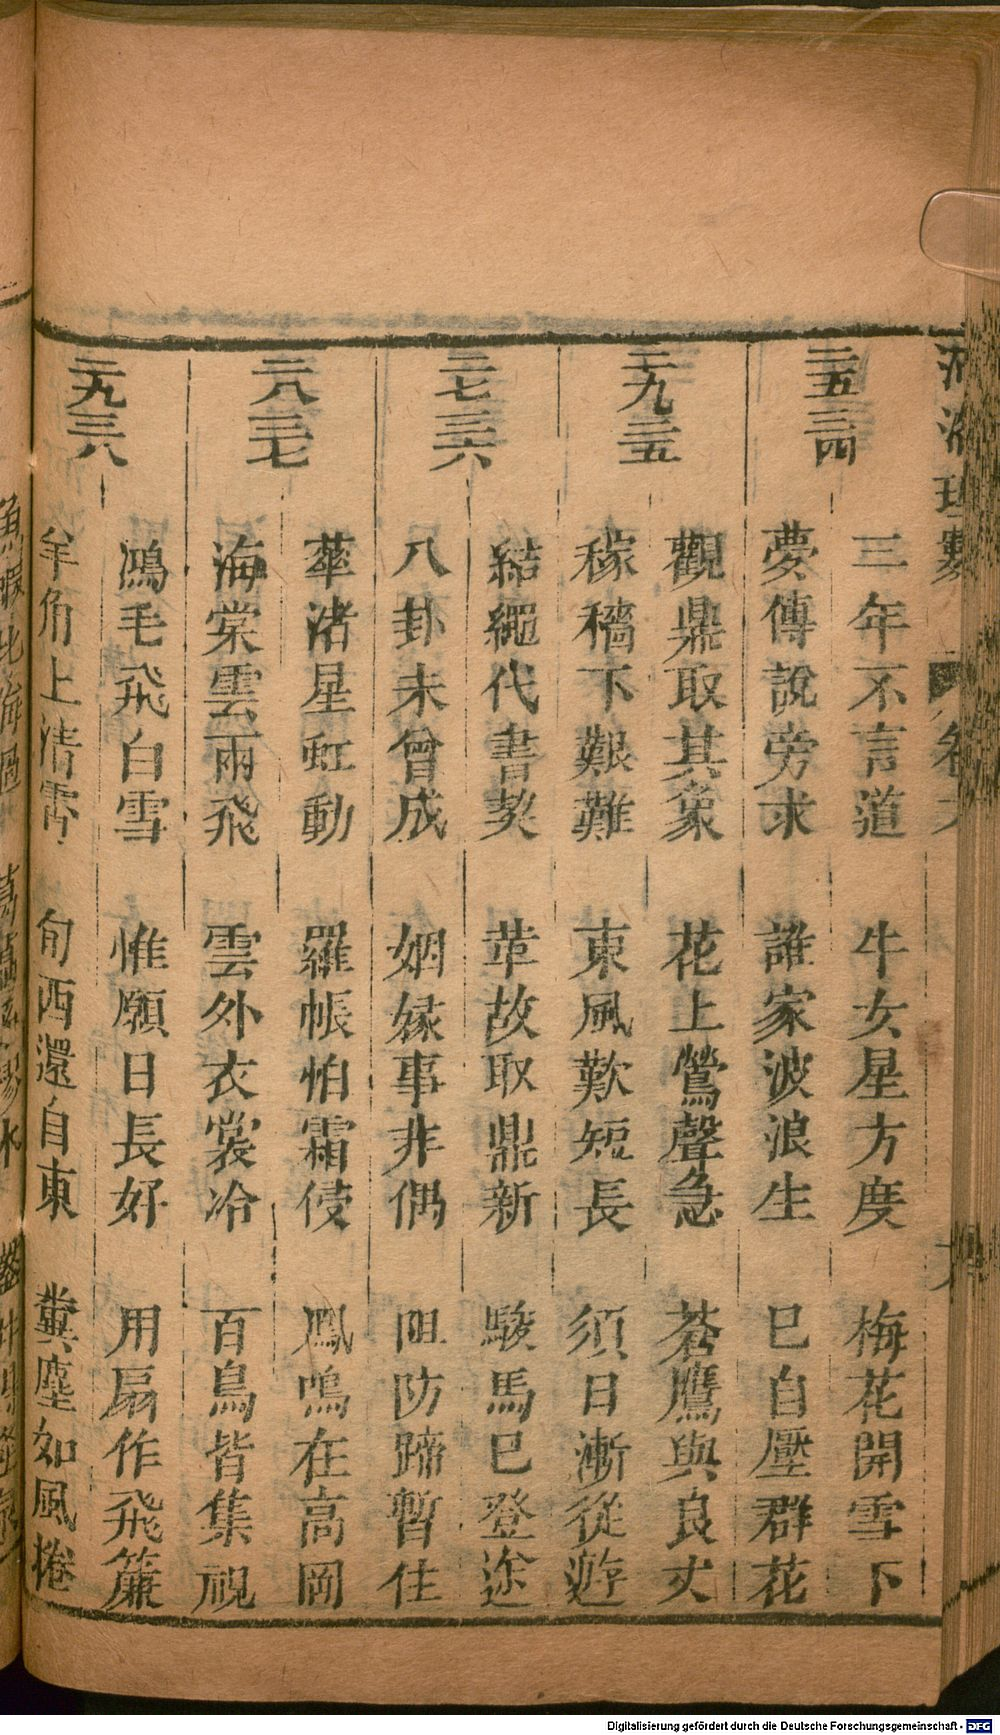 河洛理數 卷六
二五三四
三年不言道 牛女星方度 梅花開雪下
夢傳說旁求 誰家波浪生 巳自壓群花
二九三五
觀鼎取其象 花上鶯聲急 蒼鷹與良犬
稼穡下艱難 東風歎短長 須日漸從遊
二七三六
結繩代書契 革故取鼎新 駿馬巳登途
八卦未曾成 姻緣事非偶 阻防蹄暫住
二八三七
華渚星虹動 羅帳怕霜侵 鳳鳴在高岡
海棠雲雨飛 雲外衣裳冷 百鳥皆集視
二九三八
鴻毛飛白雪 惟願日長好 用扇作飛簾
羊角上清霄 旬西還自東 糞塵如風捲
Digitalisierung gefördert durch die Deutsche Forschungsgemeinschaft - DFG